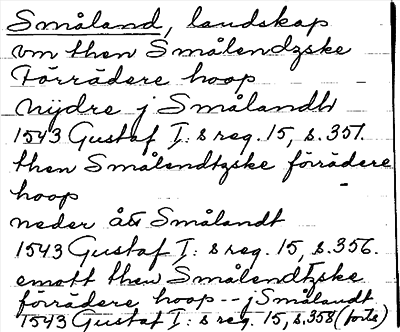 Småland, landskap
vm then Smålendzske
Förrädere hoop
nijdre j Smålandh
1543 Gustaf I:s reg. 15, s. 351.
then Smålendtzske förrädere
hoop
neder ått Smålandt
1543 Gustaf I:s reg. 15, s. 356.
emott then Smålendtzske
förrädere hoop -- j Smålandt
1543 Gustaf I:s reg. 15, s. 358 (forts)